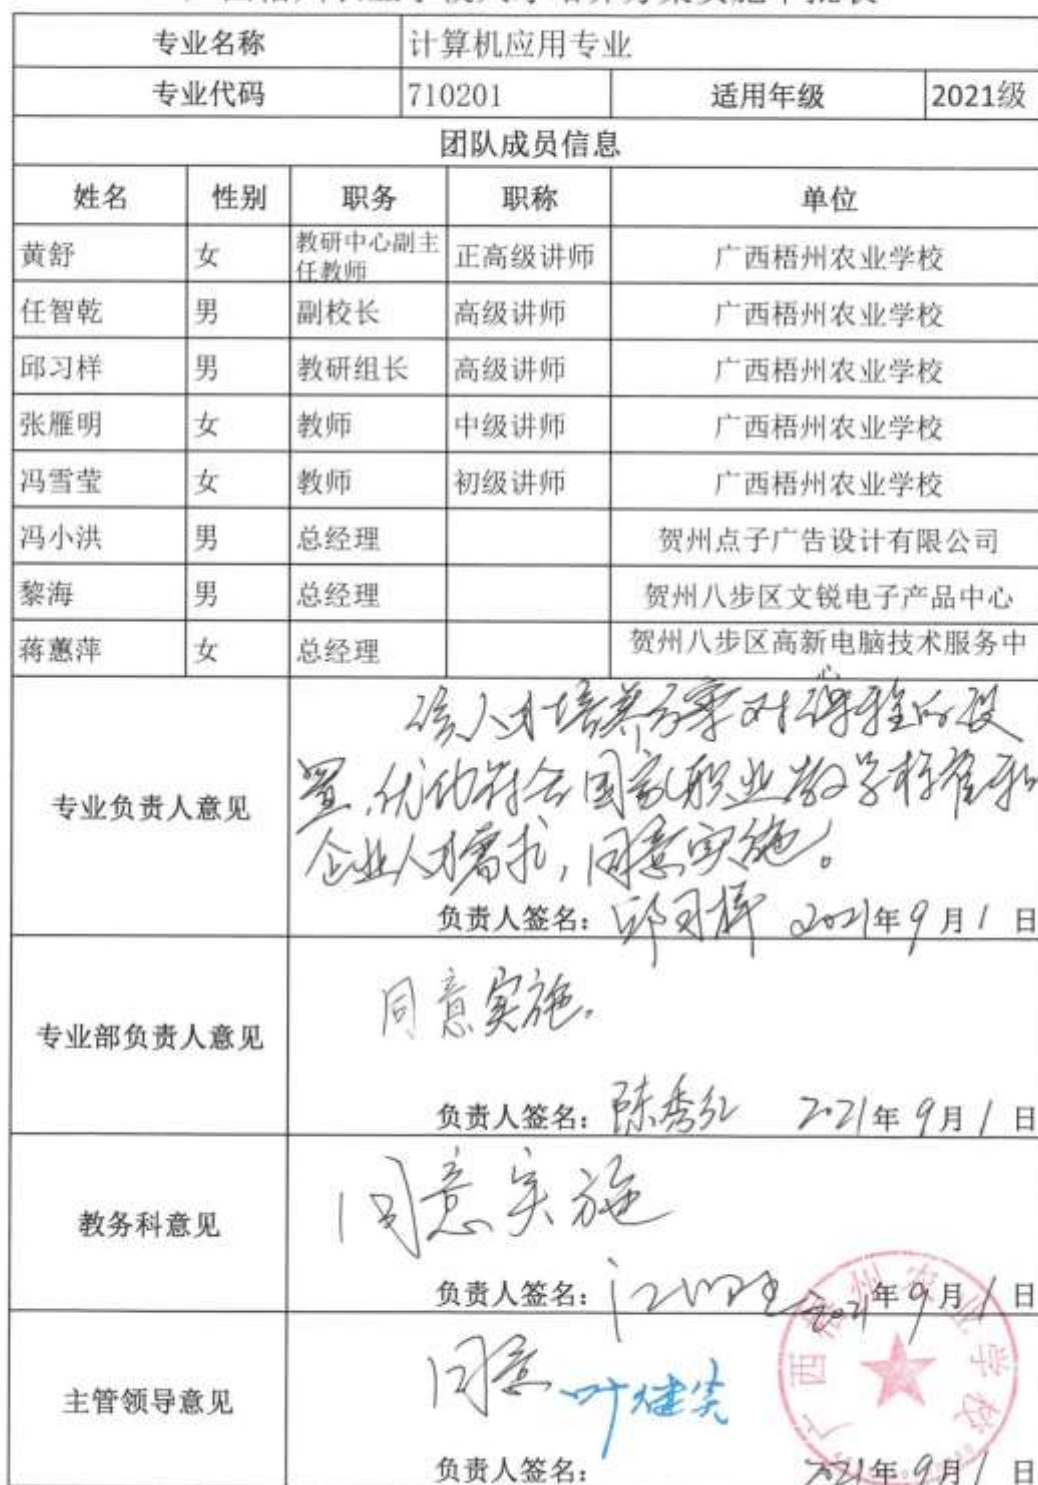 专业名称 计算机应用专业
专业代码 710201 适用年级 2021级
团队成员信息
姓名 性别 职务 职称 单位
黄舒 女 教研中心副主任教师 正高级讲师 广西梧州农业学校
任智乾 男 副校长 高级讲师 广西梧州农业学校
邱习样 男 教研组长 高级讲师 广西梧州农业学校
张雁明 女 教师 中级讲师 广西梧州农业学校
冯雪莹 女 教师 初级讲师 广西梧州农业学校
冯小洪 男 总经理 贺州点子广告设计有限公司
黎海 男 总经理 贺州八步区文锐电子产品中心
蒋蕙萍 女 总经理 贺州八步区高新电脑技术服务中心
该人才培养方案对课程的设
专业负责人意见 置、优化符合国家职业教学标准和
企业人才需求，同意实施。
负责人签名：邱习样 2021年9月1日
同意实施。
专业部负责人意见
负责人签名：陈秀红 2021年9月1日
同意实施
教务科意见
负责人签名： 2021年9月1日
同意
主管领导意见 叶健尖
负责人签名： 2021年9月1日
广西梧州农业学校